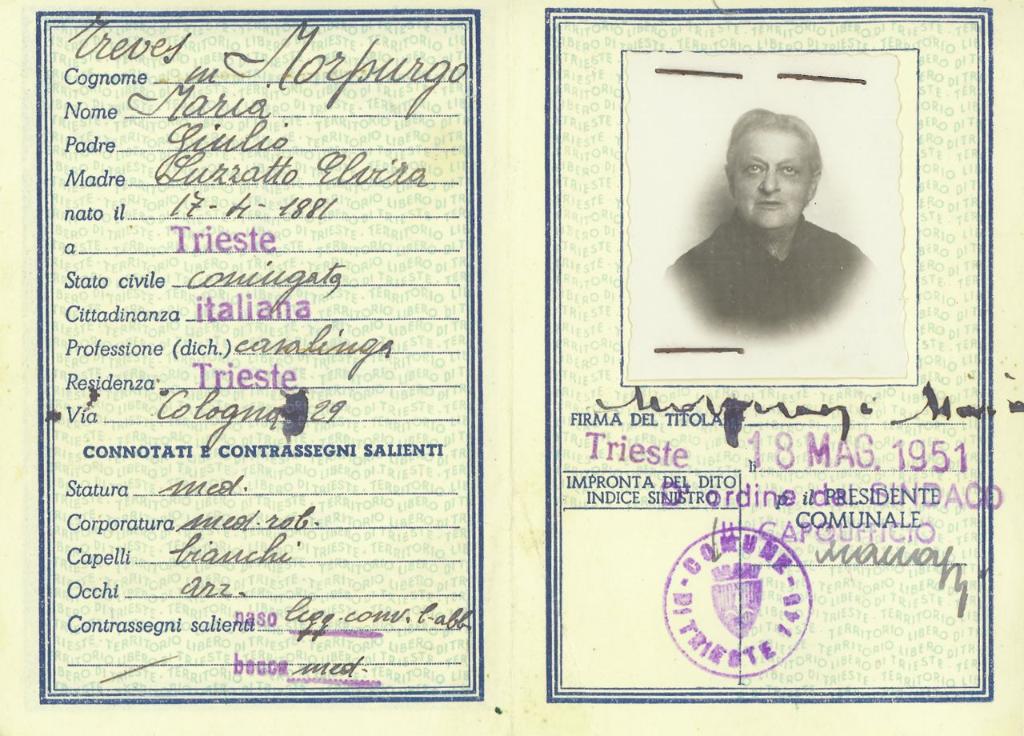 Treves
Cognome in Morpurgo
Nome Maria
Padre Giulio
Madre Luzzatto Elvira
nato il 17-4-1881
a Trieste
Stato civile coniugata
Cittadinanza italiana
Professione (dich.) casalinga
Residenza Trieste
Via Cologna 29
CONNOTATI E CONTRASSEGNI SALIENTI
Statura med.
Corporatura med. rob.
Capelli bianchi
Occhi azz.
Contrassegni salienti naso legg. conv. b. abb.
bocca med.
FIRMA DEL TITOLARE Morpurgo Maria
Trieste li 18 MAG. 1951
IMPRONTA DEL DITO
INDICE SINISTRO
D'ordine del SINDACO
p. il PRESIDENTE
COMUNALE
IL CAPOUFFICIO
COMUNE DI TRIESTE 14